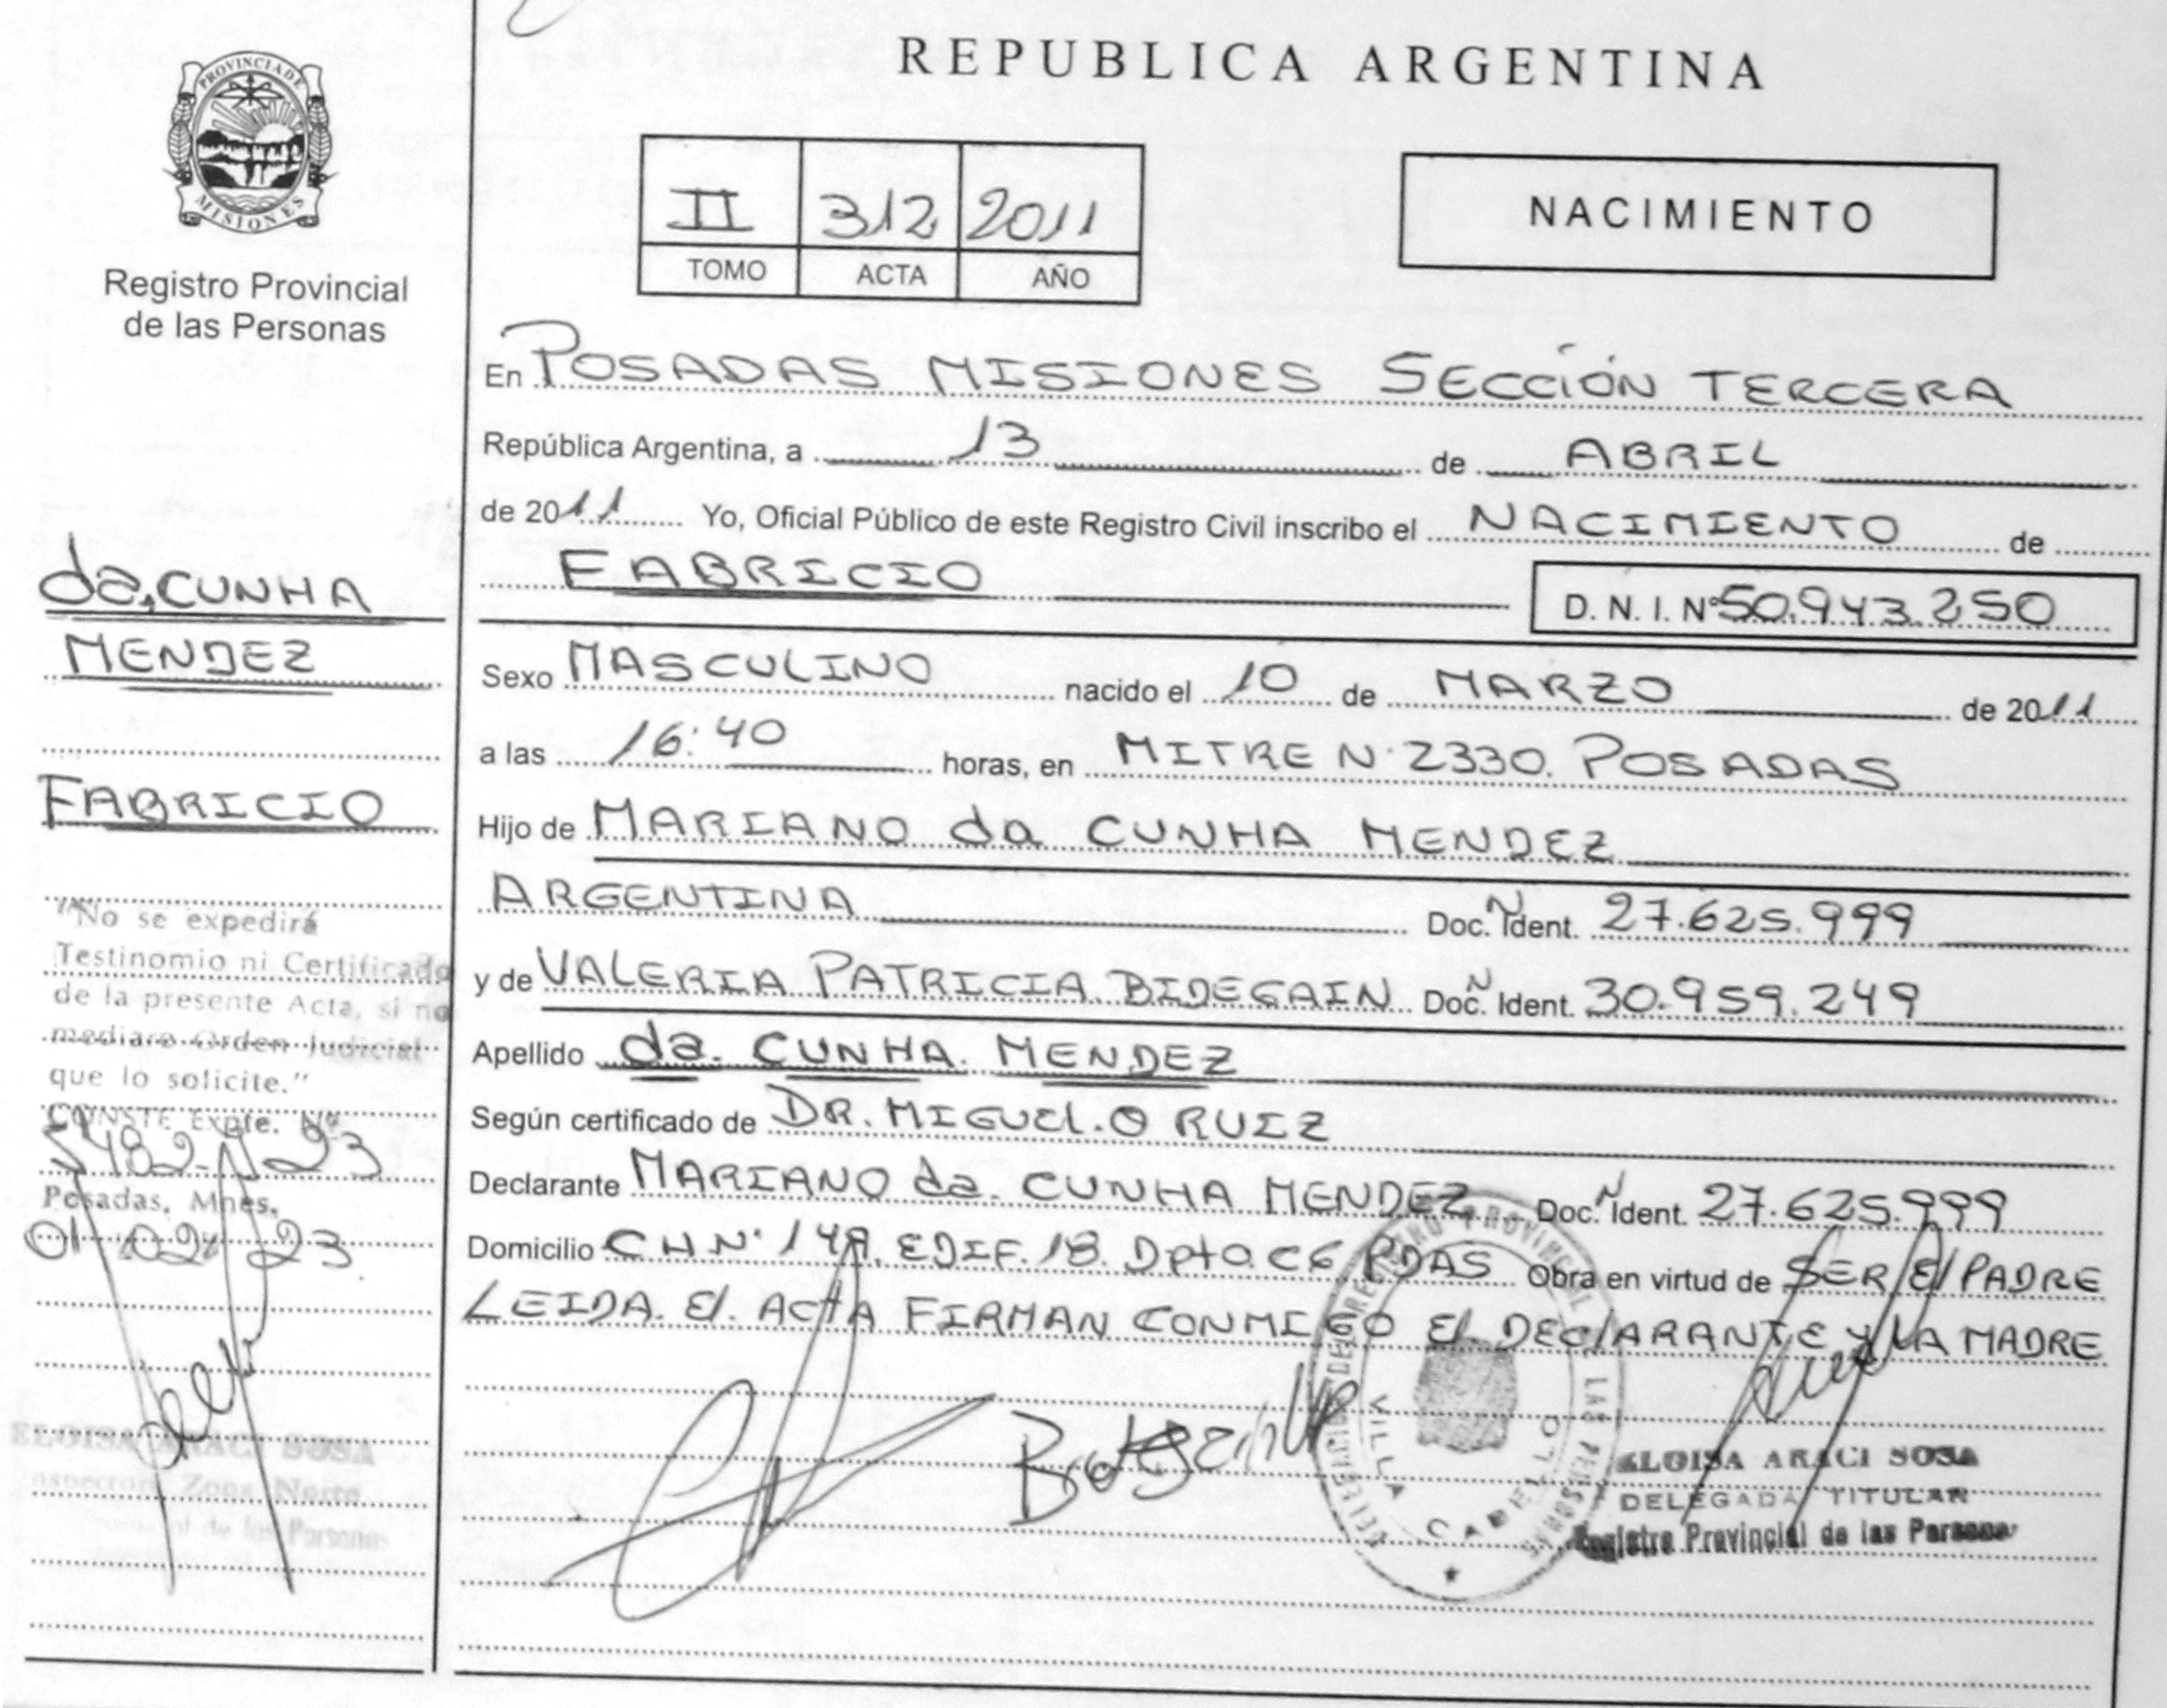 REPUBLICA ARGENTINA
PROVINCIA DE
MISIONES
Registro Provincial
de las Personas
II 312 2011
TOMO ACTA AÑO
NACIMIENTO
En POSADAS MISIONES SECCIÓN TERCERA
República Argentina, a 13 de ABRIL
de 2011 Yo, Oficial Público de este Registro Civil inscribo el NACIMIENTO de
FABRICIO D. N. I. Nº 50.943.250
Sexo MASCULINO nacido el 10 de MARZO de 2011
a las 16:40 horas, en MITRE N° 2330. POSADAS
Hijo de MARIANO da CUNHA MENDEZ
ARGENTINA Doc. N Ident. 27.625.999
y de VALERIA PATRICIA BIDEGAIN Doc. N Ident. 30.959.249
Apellido da CUNHA MENDEZ
Según certificado de DR. MIGUEL. O RUIZ
Declarante MARIANO da CUNHA MENDEZ Doc. N Ident. 27.625.999
Domicilio CH N° 149. EDIF. 18. Dpto. C6 PDAS Obra en virtud de SER El PADRE
LEIDA. El. ACtA FIRMAN CONMIGO El DEClARANTE y LA MADRE
da CUNHA
MENDEZ
FABRICIO
"No se expedirá
Testinomio ni Certificado
de la presente Acta, si no
mediare Orden Judicial
que lo solicite."
CONSTE Expte. Nº
Posadas, Mnes.
01 02 23
ELOISA ARACI SOSA
Inspectora Zona Norte
Provincial de las Personas
VILLA CABELLO
ELOISA ARACI SOSA
DELEGADA TITULAR
Registro Provincial de las Personas